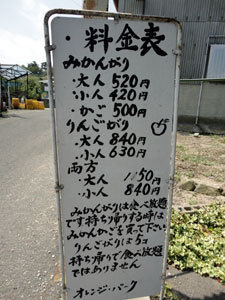 ・料金表
みかんがり
・大人 520円
・小人 420円
・かご 500円
りんごがり
・大人 840円
・小人 630円
両方
・大人 1150円
・小人 840円
みかんがりは食べ放題
です持ち帰りする時は
みかんかごを買って下さい
りんごがりは5コ
持ち帰りで食べ放題
ではありません
オレンジ・パーク